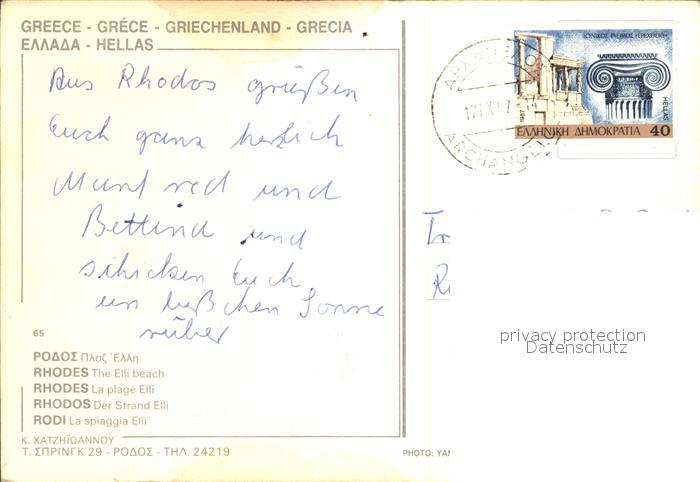 GREECE - GRÉCE - GRIECHENLAND - GRECIA
ΕΛΛΑΔΑ - HELLAS
Aus Rhodos grüßen
Euch ganz herzlich
Manfred und
Bettina und
schicken Euch
ein bußchen Sonne
rüber
65
ΡΟΔΟΣ Πλαζ Έλλη
RHODES The Elli beach
RHODES La plage Elli
RHODOS Der Strand Elli
RODI La spiaggia Elli
Κ. ΧΑΤΖΗΪΩΑΝΝΟΥ
Τ. ΣΠΡΙΝΓΚ 29 - ΡΟΔΟΣ - ΤΗΛ. 24219
ΙΩΝΙΚΟΣ ΡΥΘΜΟΣ «ΕΡΕΧΘΕΙΟ»
1987
HELLAS
ΕΛΛΗΝΙΚΗ ΔΗΜΟΚΡΑΤΙΑ 40
ARCHANGELO
privacy protection
Datenschutz
PHOTO: